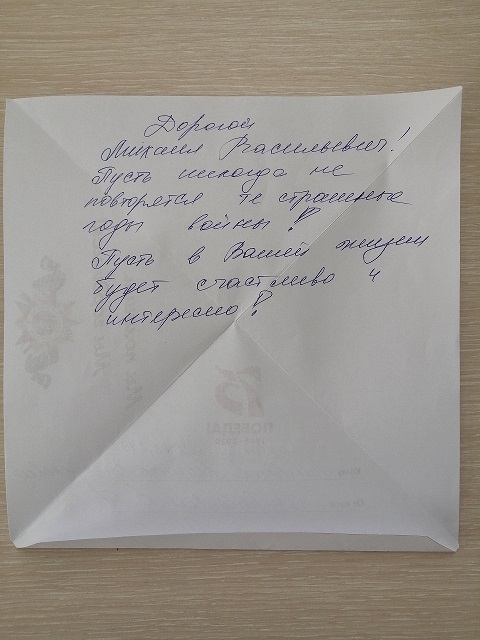 Дорогой
Михаил Васильевич!
Пусть никогда не
повторятся те страшные
годы войны!
Пусть в Вашей жизни
будет счастливо и
интересно!
75
ПОБЕДА!
1945-2020